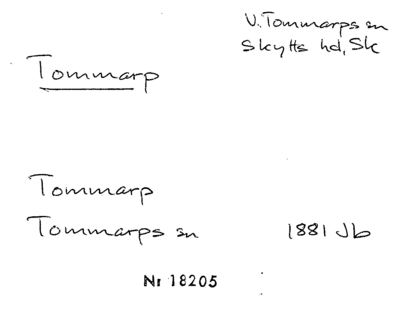 V. Tommarps sn
Skytts hd, Sk
Tommarp
Tommarp
Tommarps sn 1881 Jb
Nr 18205